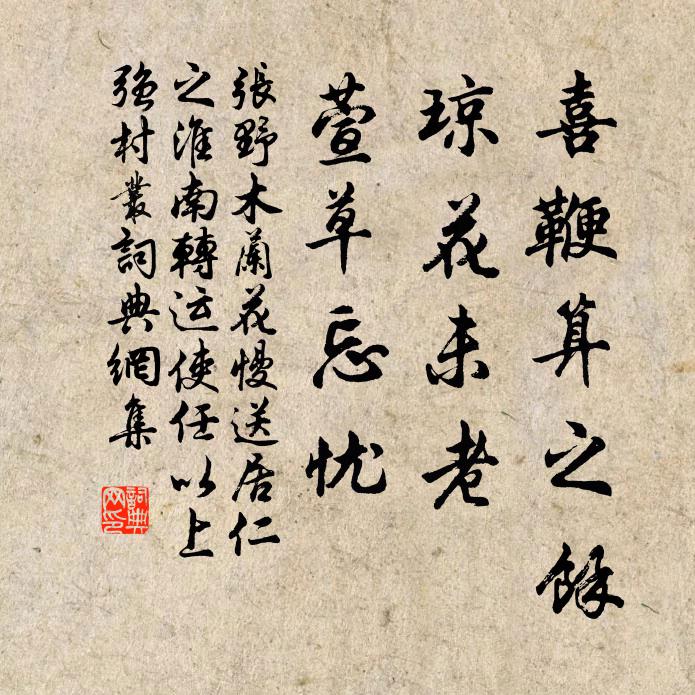 喜鞭算之餘
琼花未老
萱草忘忧
張野木蘭花慢送居仁
之淮南轉运使任以上
强村叢詞典網集
詞典
网印